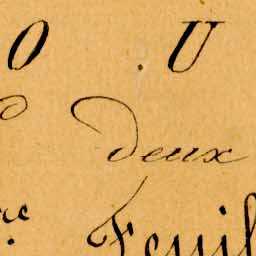 O . U
deux
Feuil